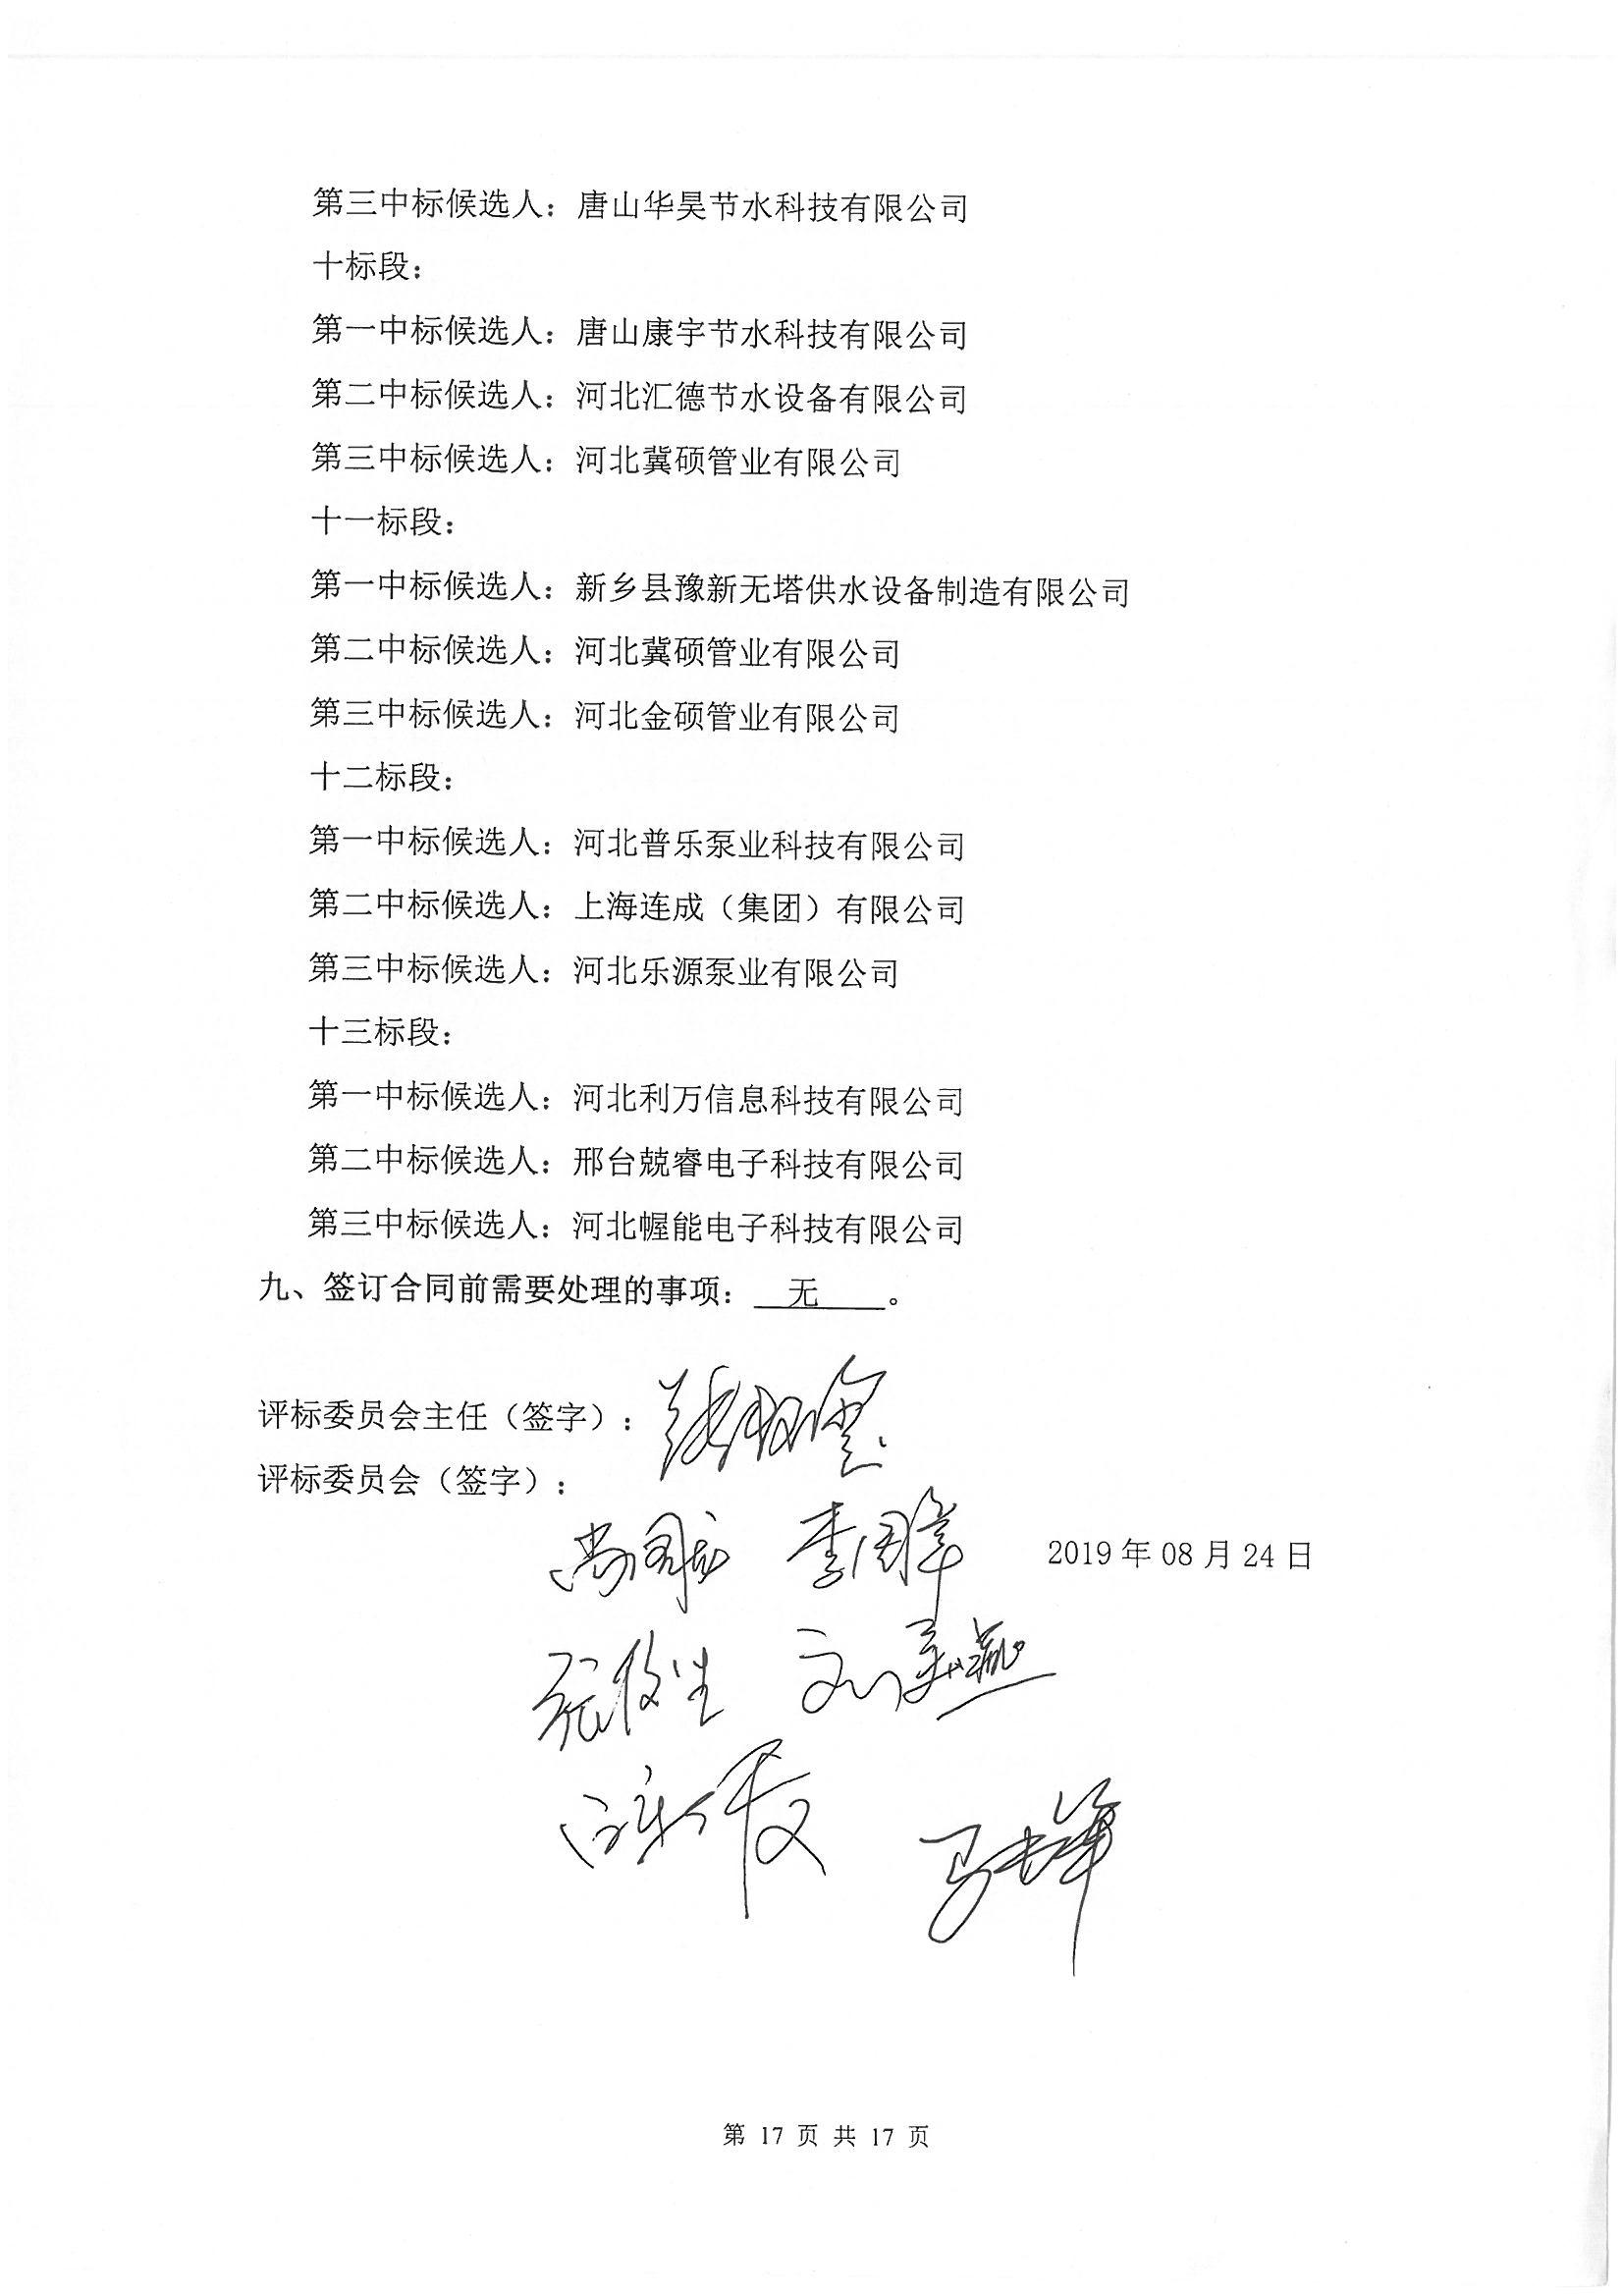 第三中标候选人：唐山华昊节水科技有限公司
十标段：
第一中标候选人：唐山康宇节水科技有限公司
第二中标候选人：河北汇德节水设备有限公司
第三中标候选人：河北冀硕管业有限公司
十一标段：
第一中标候选人：新乡县豫新无塔供水设备制造有限公司
第二中标候选人：河北冀硕管业有限公司
第三中标候选人：河北金硕管业有限公司
十二标段：
第一中标候选人：河北普乐泵业科技有限公司
第二中标候选人：上海连成（集团）有限公司
第三中标候选人：河北乐源泵业有限公司
十三标段：
第一中标候选人：河北利万信息科技有限公司
第二中标候选人：邢台兢睿电子科技有限公司
第三中标候选人：河北幄能电子科技有限公司
九、签订合同前需要处理的事项：无。
评标委员会主任（签字）：
评标委员会（签字）：
2019年08月24日
第 17 页 共 17 页